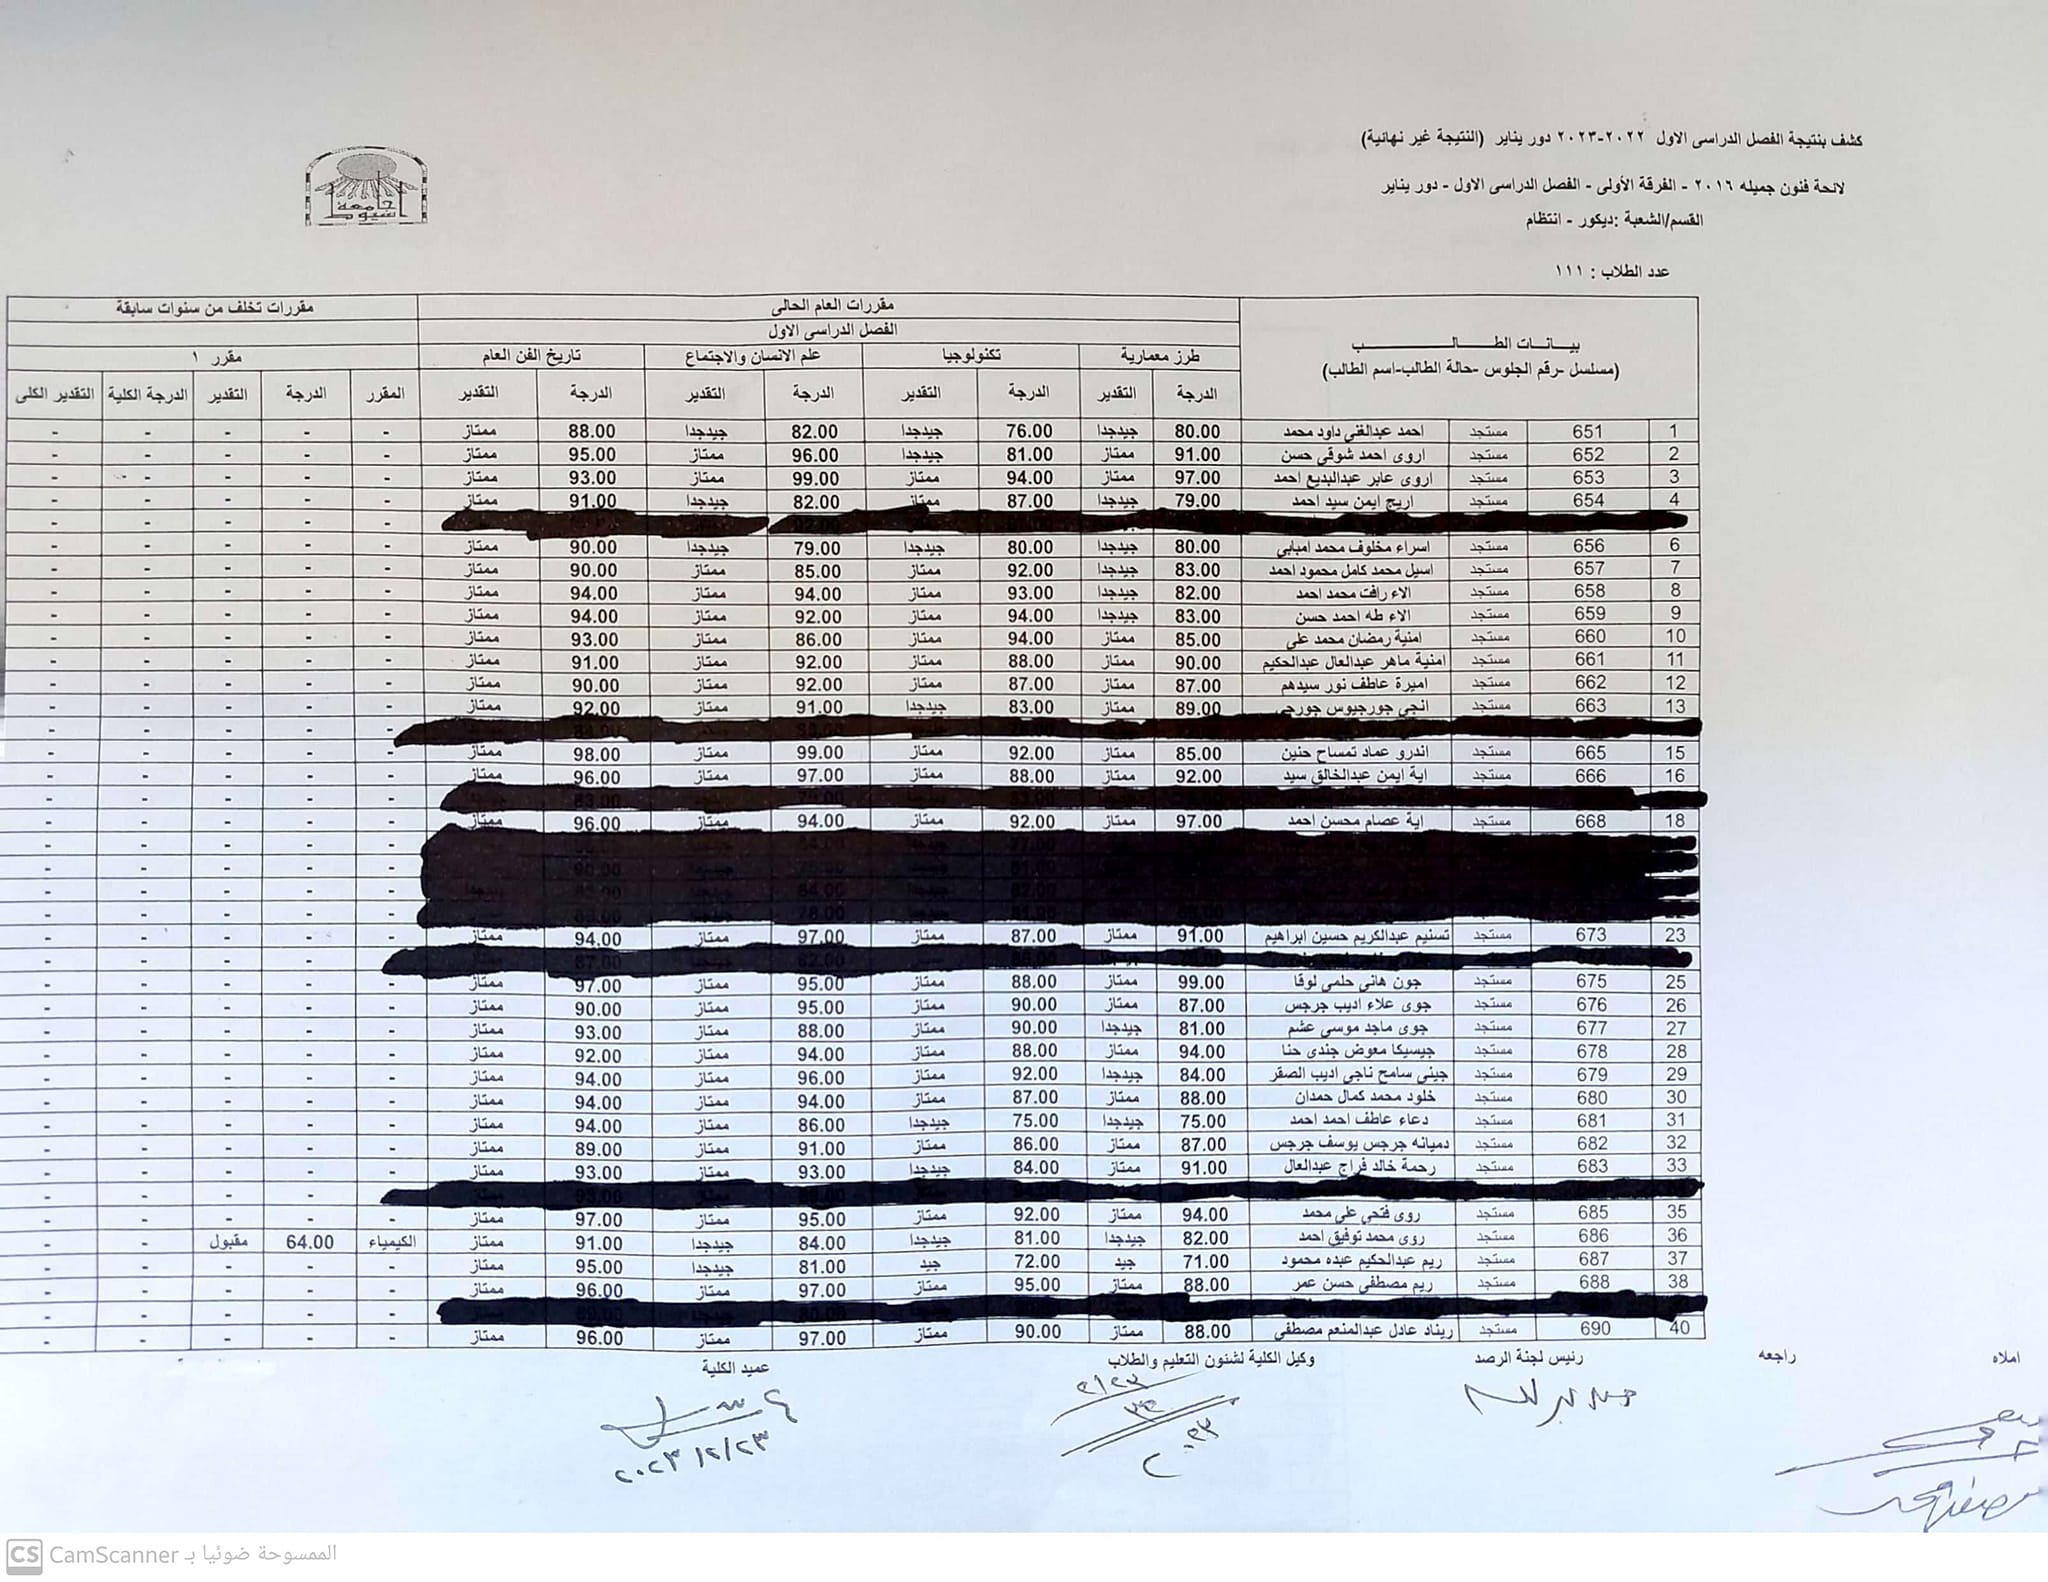 كشف بنتيجة الفصل الدراسى الاول ٢٠٢٢-٢٠٢٣ دور يناير (النتيجة غير نهائية)
لائحة فنون جميله ٢٠١٦ - الفرقة الأولى - الفصل الدراسى الاول - دور يناير
القسم/الشعبة :ديكور - انتظام
عدد الطلاب : ١١١
جامعة اسيوط
بيـــانـــات الطـــــالـــــــــب مقررات العام الحالى مقررات تخلف من سنوات سابقة
(مسلسل -رقم الجلوس -حالة الطالب-اسم الطالب) الفصل الدراسى الاول
طرز معمارية تكنولوجيا علم الانسان والاجتماع تاريخ الفن العام مقرر ١
الدرجة التقدير الدرجة التقدير الدرجة التقدير الدرجة التقدير المقرر الدرجة التقدير الدرجة الكلية التقدير الكلى
1 651 مستجد احمد عبدالغنى داود محمد 80.00 جيدجدا 76.00 جيدجدا 82.00 جيدجدا 88.00 ممتاز - - - - -
2 652 مستجد اروى احمد شوقى حسن 91.00 ممتاز 81.00 جيدجدا 96.00 ممتاز 95.00 ممتاز - - - - -
3 653 مستجد اروى عابر عبدالبديع احمد 97.00 ممتاز 94.00 ممتاز 99.00 ممتاز 93.00 ممتاز - - - - -
4 654 مستجد اريج ايمن سيد احمد 79.00 جيدجدا 87.00 ممتاز 82.00 جيدجدا 91.00 ممتاز - - - - -
- - - - -
6 656 مستجد اسراء مخلوف محمد امبابى 80.00 جيدجدا 80.00 جيدجدا 79.00 جيدجدا 90.00 ممتاز - - - - -
7 657 مستجد اسيل محمد كامل محمود احمد 83.00 جيدجدا 92.00 ممتاز 85.00 ممتاز 90.00 ممتاز - - - - -
8 658 مستجد الاء رافت محمد احمد 82.00 جيدجدا 93.00 ممتاز 94.00 ممتاز 94.00 ممتاز - - - - -
9 659 مستجد الاء طه احمد حسن 83.00 جيدجدا 94.00 ممتاز 92.00 ممتاز 94.00 ممتاز - - - - -
10 660 مستجد امنية رمضان محمد على 85.00 ممتاز 94.00 ممتاز 86.00 ممتاز 93.00 ممتاز - - - - -
11 661 مستجد امنية ماهر عبدالعال عبدالحكيم 90.00 ممتاز 88.00 ممتاز 92.00 ممتاز 91.00 ممتاز - - - - -
12 662 مستجد اميرة عاطف نور سيدهم 87.00 ممتاز 87.00 ممتاز 92.00 ممتاز 90.00 ممتاز - - - - -
13 663 مستجد انجي جورجيوس جورجى 89.00 ممتاز 83.00 جيدجدا 91.00 ممتاز 92.00 ممتاز - - - - -
- - - - -
15 665 مستجد اندرو عماد تمساح حنين 85.00 ممتاز 92.00 ممتاز 99.00 ممتاز 98.00 ممتاز - - - - -
16 666 مستجد اية ايمن عبدالخالق سيد 92.00 ممتاز 88.00 ممتاز 97.00 ممتاز 96.00 ممتاز - - - - -
- - - - -
18 668 مستجد اية عصام محسن احمد 97.00 ممتاز 92.00 ممتاز 94.00 ممتاز 96.00 ممتاز - - - - -
- - - - -
- - - - -
- - - - -
- - - - -
23 673 مستجد تسنيم عبدالكريم حسين ابراهيم 91.00 ممتاز 87.00 ممتاز 97.00 ممتاز 94.00 ممتاز - - - - -
- - - - -
25 675 مستجد جون هانى حلمى لوقا 99.00 ممتاز 88.00 ممتاز 95.00 ممتاز 97.00 ممتاز - - - - -
26 676 مستجد جوى علاء اديب جرجس 87.00 ممتاز 90.00 ممتاز 95.00 ممتاز 90.00 ممتاز - - - - -
27 677 مستجد جوى ماجد موسى عشم 81.00 جيدجدا 90.00 ممتاز 88.00 ممتاز 93.00 ممتاز - - - - -
28 678 مستجد جيسيكا معوض جندى حنا 94.00 ممتاز 88.00 ممتاز 94.00 ممتاز 92.00 ممتاز - - - - -
29 679 مستجد جينى سامح ناجى اديب الصقر 84.00 جيدجدا 92.00 ممتاز 96.00 ممتاز 94.00 ممتاز - - - - -
30 680 مستجد خلود محمد كمال حمدان 88.00 ممتاز 87.00 ممتاز 94.00 ممتاز 94.00 ممتاز - - - - -
31 681 مستجد دعاء عاطف احمد احمد 75.00 جيدجدا 75.00 جيدجدا 86.00 ممتاز 94.00 ممتاز - - - - -
32 682 مستجد دميانه جرجس يوسف جرجس 87.00 ممتاز 86.00 ممتاز 91.00 ممتاز 89.00 ممتاز - - - - -
33 683 مستجد رحمة خالد فراج عبدالعال 91.00 ممتاز 84.00 جيدجدا 93.00 ممتاز 93.00 ممتاز - - - - -
- - - - -
35 685 مستجد روى فتحى على محمد 94.00 ممتاز 92.00 ممتاز 95.00 ممتاز 97.00 ممتاز - - - - -
36 686 مستجد روى محمد توفيق احمد 82.00 جيدجدا 81.00 جيدجدا 84.00 جيدجدا 91.00 ممتاز الكيمياء 64.00 مقبول - -
37 687 مستجد ريم عبدالحكيم عبده محمود 71.00 جيد 72.00 جيد 81.00 جيدجدا 95.00 ممتاز - - - - -
38 688 مستجد ريم مصطفى حسن عمر 88.00 ممتاز 95.00 ممتاز 97.00 ممتاز 96.00 ممتاز - - - - -
- - - - -
40 690 مستجد ريناد عادل عبدالمنعم مصطفى 88.00 ممتاز 90.00 ممتاز 97.00 ممتاز 96.00 ممتاز - - - - -
املاه راجعه رئيس لجنة الرصد وكيل الكلية لشئون التعليم والطلاب عميد الكلية
٢٠٢٣/٢/٢٣
CS CamScanner الممسوحة ضوئيا بـ